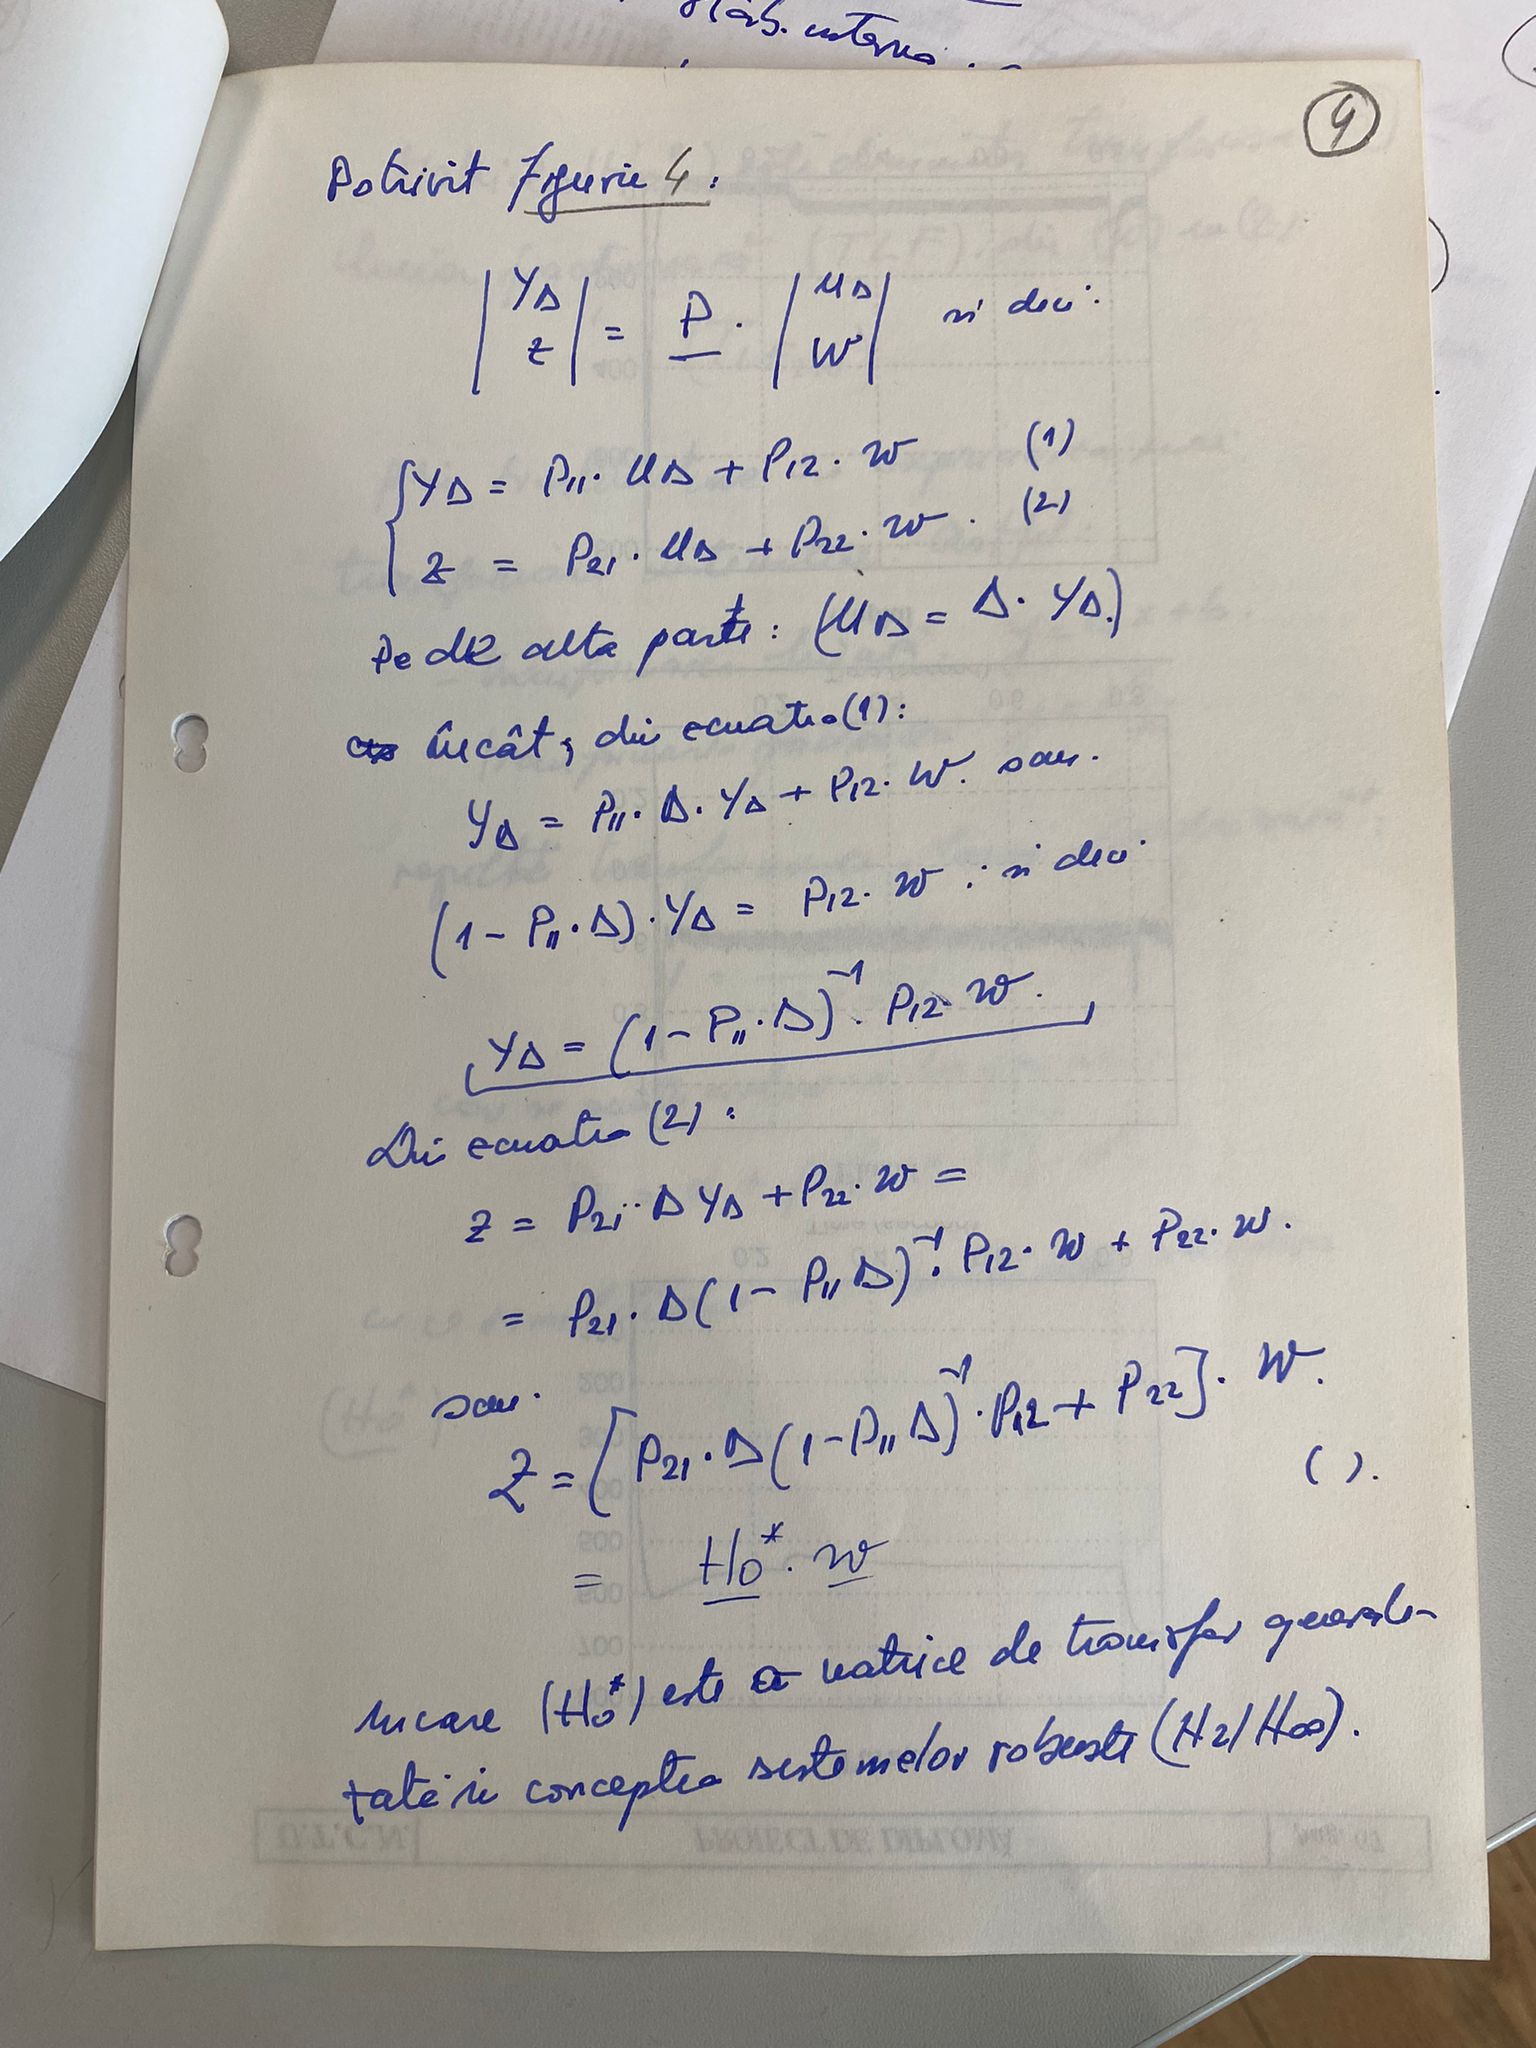 stab. interna
9
Potrivit figurii 4:
| YΔ | = P · | uΔ | si deci:
| z | | w |
{ YΔ = P11 · uΔ + P12 · w (1)
z = P21 · uΔ + P22 · w . (2)
Pe de alta parte: (uΔ = Δ · YΔ.)
încât, din ecuatia (1):
YΔ = P11 · Δ · YΔ + P12 · w. sau.
(1 - P11 · Δ) · YΔ = P12 · w ; si deci
YΔ = (1 - P11 · Δ)⁻¹ · P12 · w.
Din ecuatia (2):
z = P21 · Δ YΔ + P22 · w =
= P21 · Δ (1 - P11 Δ)⁻¹ · P12 · w + P22 · w.
sau.
Z = [P21 · Δ (1 - P11 Δ)⁻¹ · P12 + P22] · w.
( ).
= H0* · w
in care (H0*) este o matrice de transfer generali-
zată in conceptia sistemelor robuste (H2/H∞).
U.T.C.N. PROIECT DE DIPLOMĂ